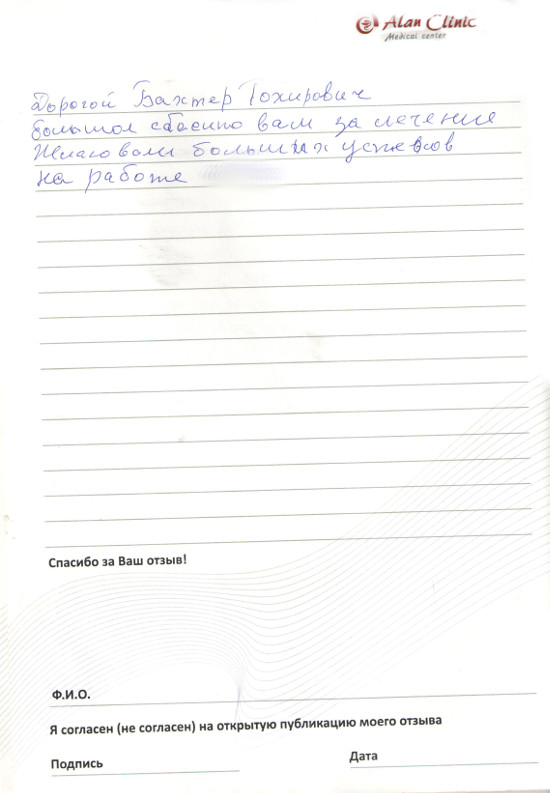 Alan Clinic
Medical center
Дорогой Бахтер Тохирович
большол сбасибо вам за лечение
Желаю вам больших успехов
на работе
Спасибо за Ваш отзыв!
Ф.И.О.
Я согласен (не согласен) на открытую публикацию моего отзыва
Подпись
Дата